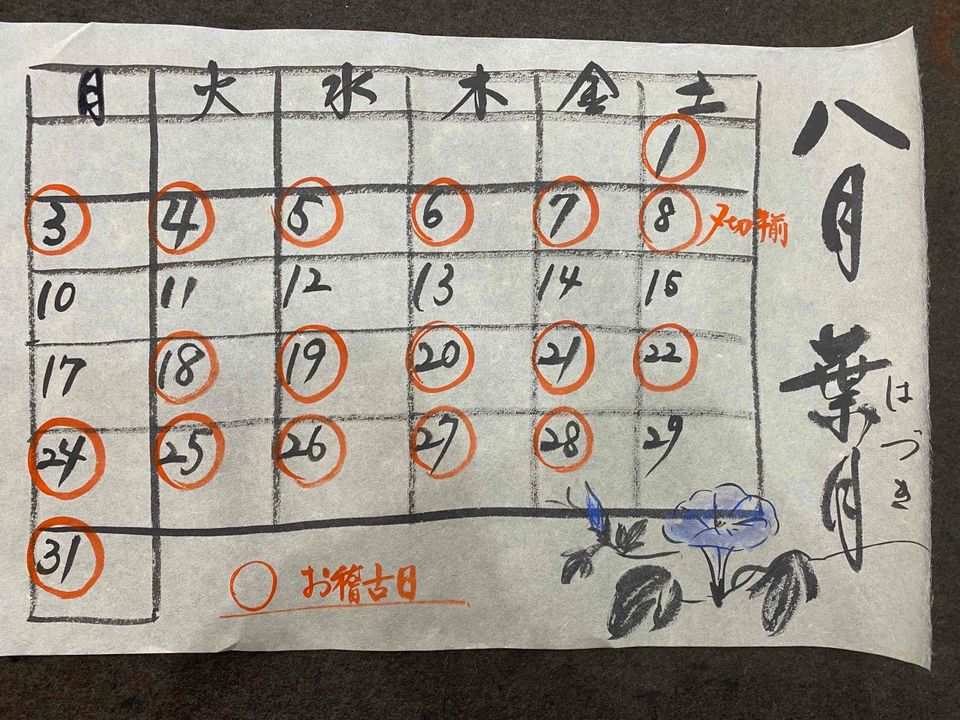 八月 葉月
はづき
月 火 水 木 金 土
1
3 4 5 6 7 8 〆切午前
10 11 12 13 14 15
17 18 19 20 21 22
24 25 26 27 28 29
31
お稽古日